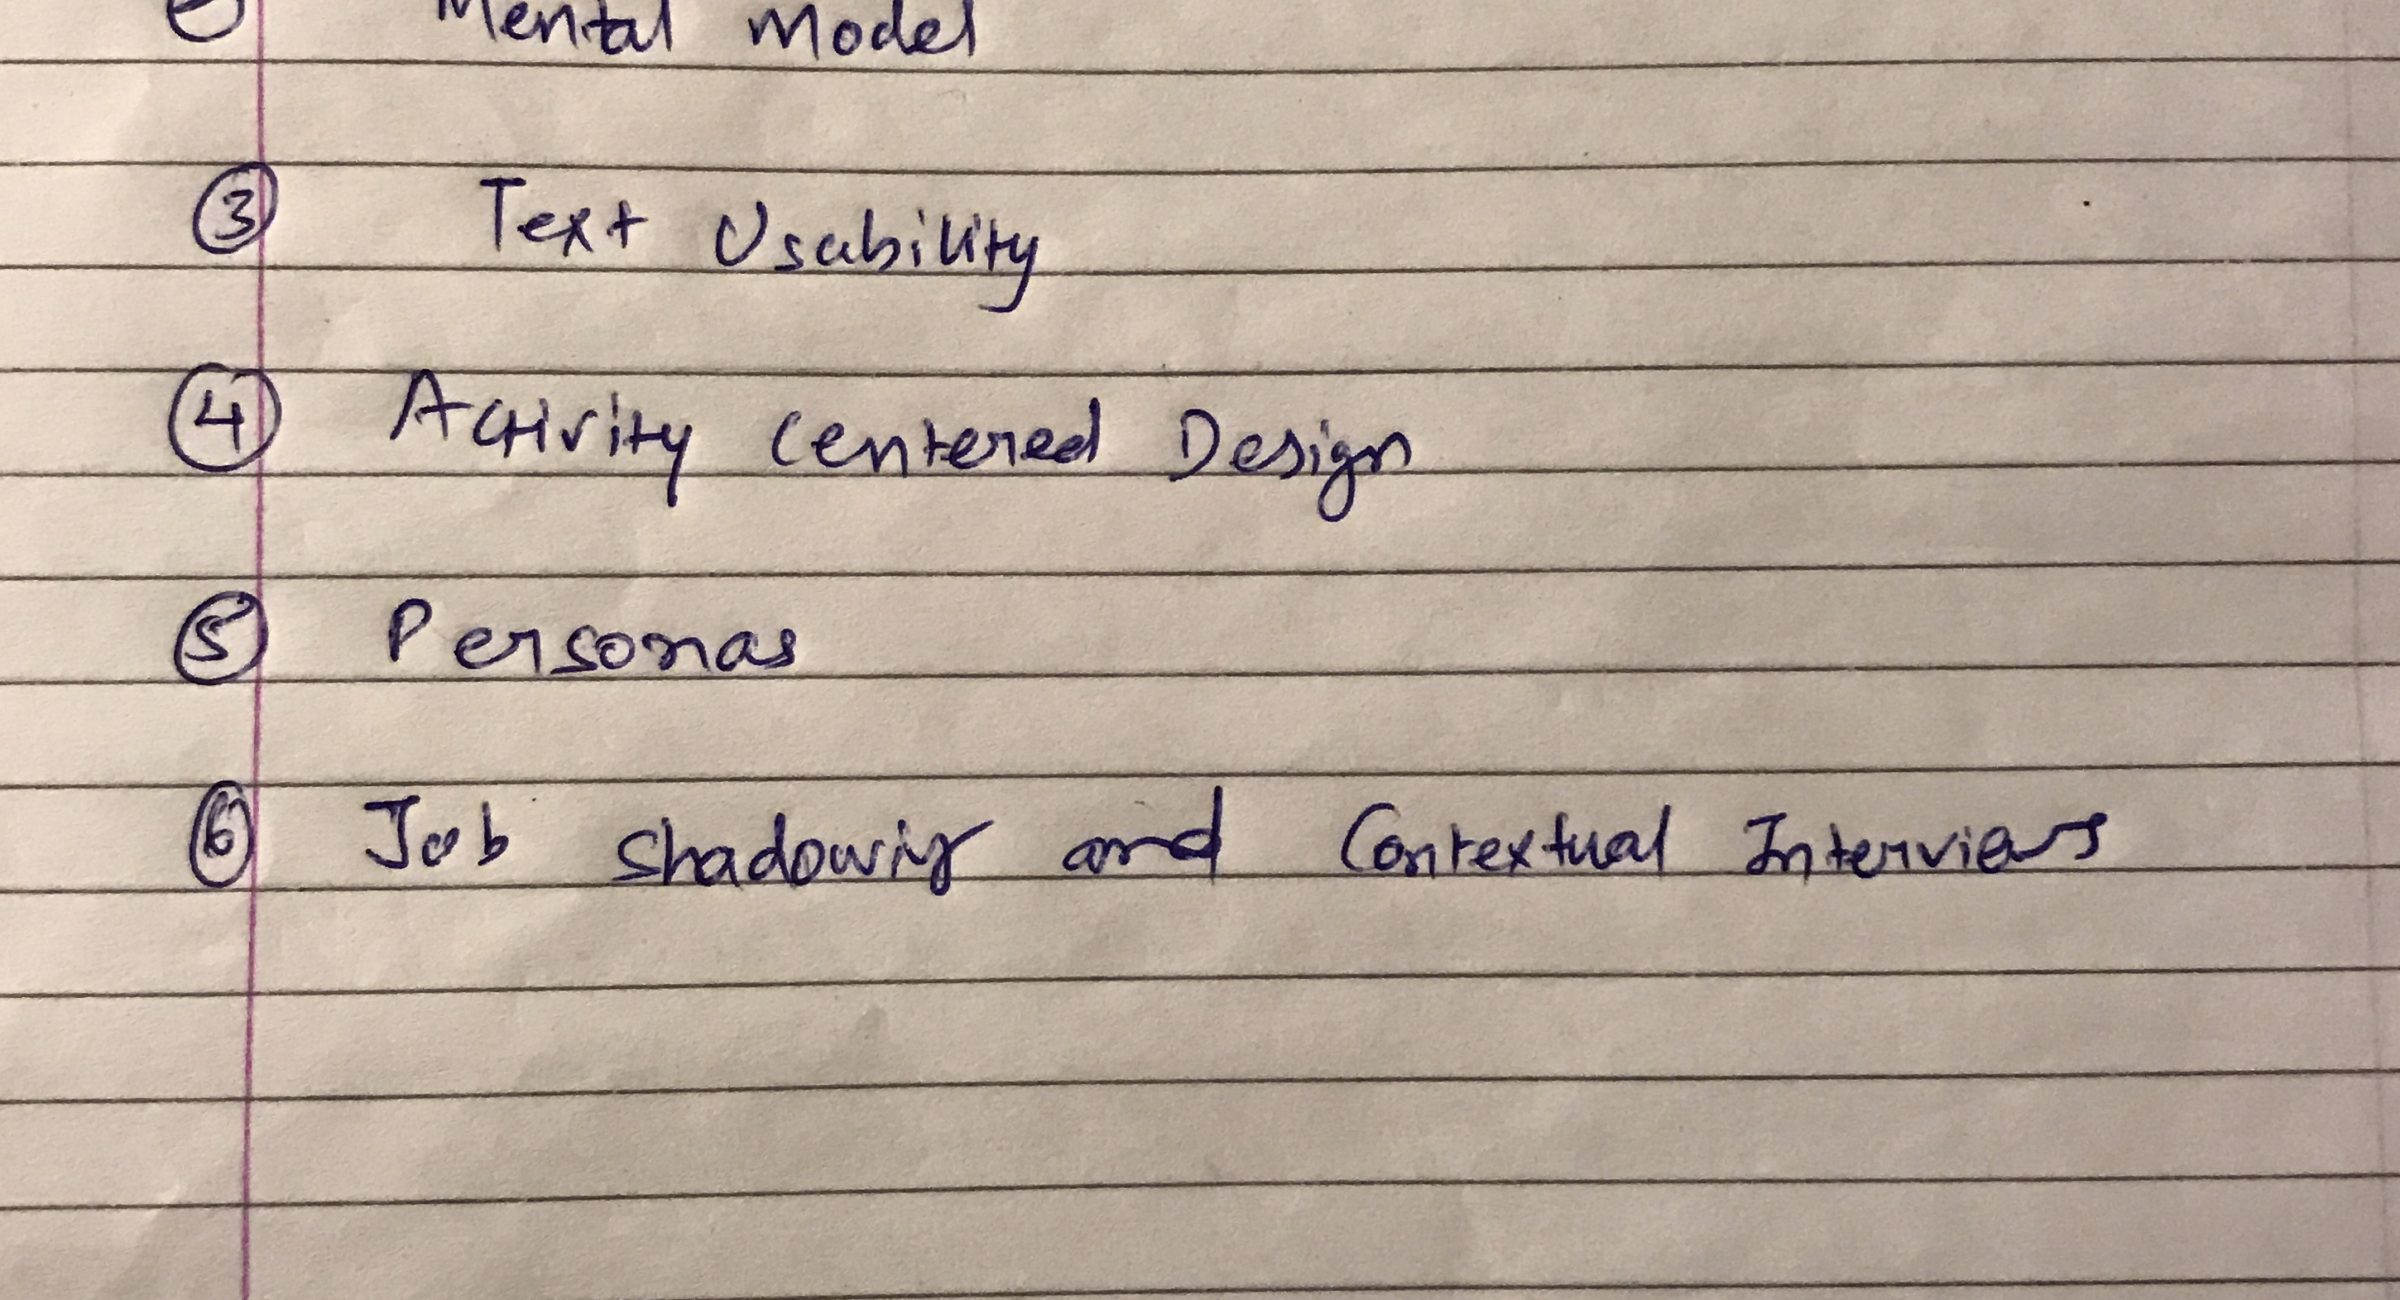 Mental Model
③ Text Usability
④ Activity Centered Design
⑤ Personas
⑥ Job Shadowing and Contextual Interviews